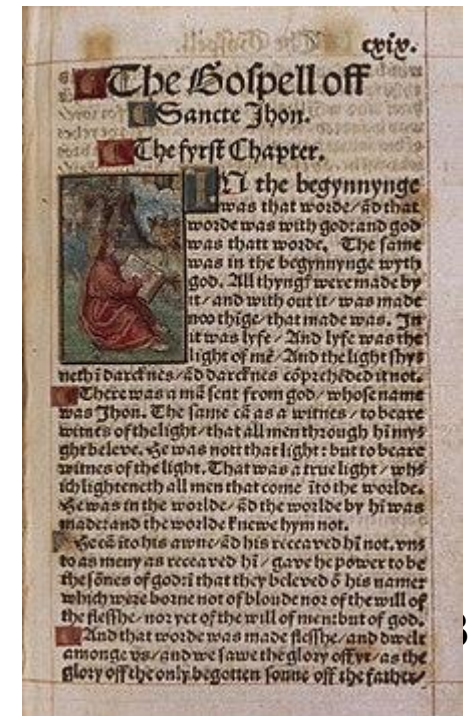 cxix.
The Gospell off
Sancte Jhon.
The fyrst Chapter.
IN the begynnynge
was that worde/ ād that
worde was with god: and god
was thatt worde. The same
was in the begynnynge wyth
god. All thyngs were made by
it/ and with out it/ was made
noo thige/ that made was. In
it was lyfe/ And lyfe was the
light of mē/ And the light shys
neth ī darcknes/ ād darcknes cōprehēded it not.
There was a mā sent from god/ whose name
was Jhon. The same cā as a witnes/ to beare
witnes of the light/ that all men through hī mys
ght beleve. He was nott that light: but to beare
witnes of the light. That was a true light/ whs
ich lighteneth all men that come īto the worlde.
He was in the worlde/ ād the worlde by hī was
made: and the worlde knewe hym not.
He cā īto his awne/ ād his receaved hī not. vns
to as meny as receaved hī/ gave he power to be
the sōnes of god: ī that they beleved ō his name:
which were borne not of bloude nor of the will of
the flesshe/ nor yet of the will of men: but of god.
And that worde was made flesshe/ and dwelt
amonge vs/ and we sawe the glory off yt/ as the
glory off the only begotten sonne off the father/